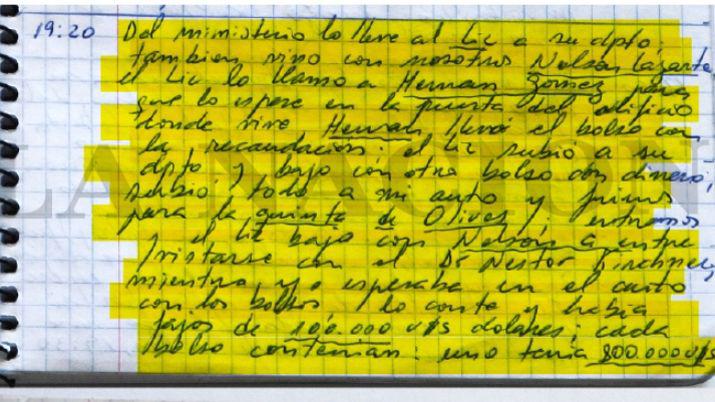 19:20 Del ministerio lo lleve al Lic a su dpto.
tambien vino con nosotros Nelson Lazarte
el Lic lo llamo a Hernan Gomez para
que lo espere en la puerta del edificio
donde vive Hernan llevó el bolso con
la recaudación, el Lic subió a su
dpto y bajo con otro bolso con dinero,
subió todo a mi auto y fuimos
para la quinta de Olivos; entramos
y el Lic bajo con Nelson a entre
/vistarse con el Dr Nestor Kirchner,
mientras yo esperaba en el auto
con los bolsos, lo conte y habia
fajos de 100.000 u$s dolares; cada
bolso contenian: uno tenia 800.000 u$s
LA NACION